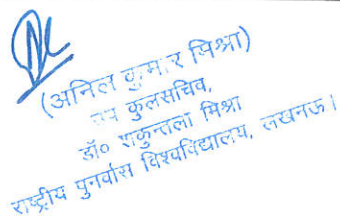 (अनिल कुमार मिश्रा)
उप कुलसचिव,
डॉ० शकुन्तला मिश्रा
राष्ट्रीय पुनर्वास विश्वविद्यालय, लखनऊ।